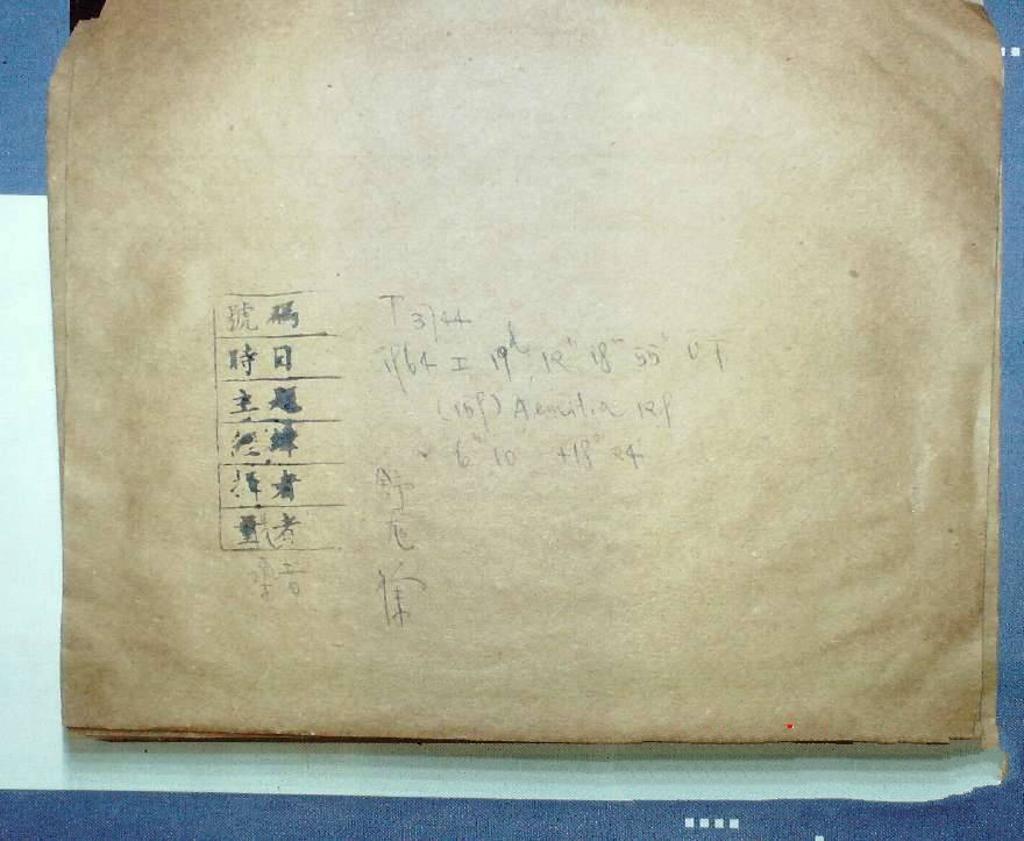 號碼 T 3744
時日 1964 I 19d 12h 18m 55s UT
主題 (159) Aemilia Rf
經緯 6h 10m +18° 24'
攝者 舒
量者
徐